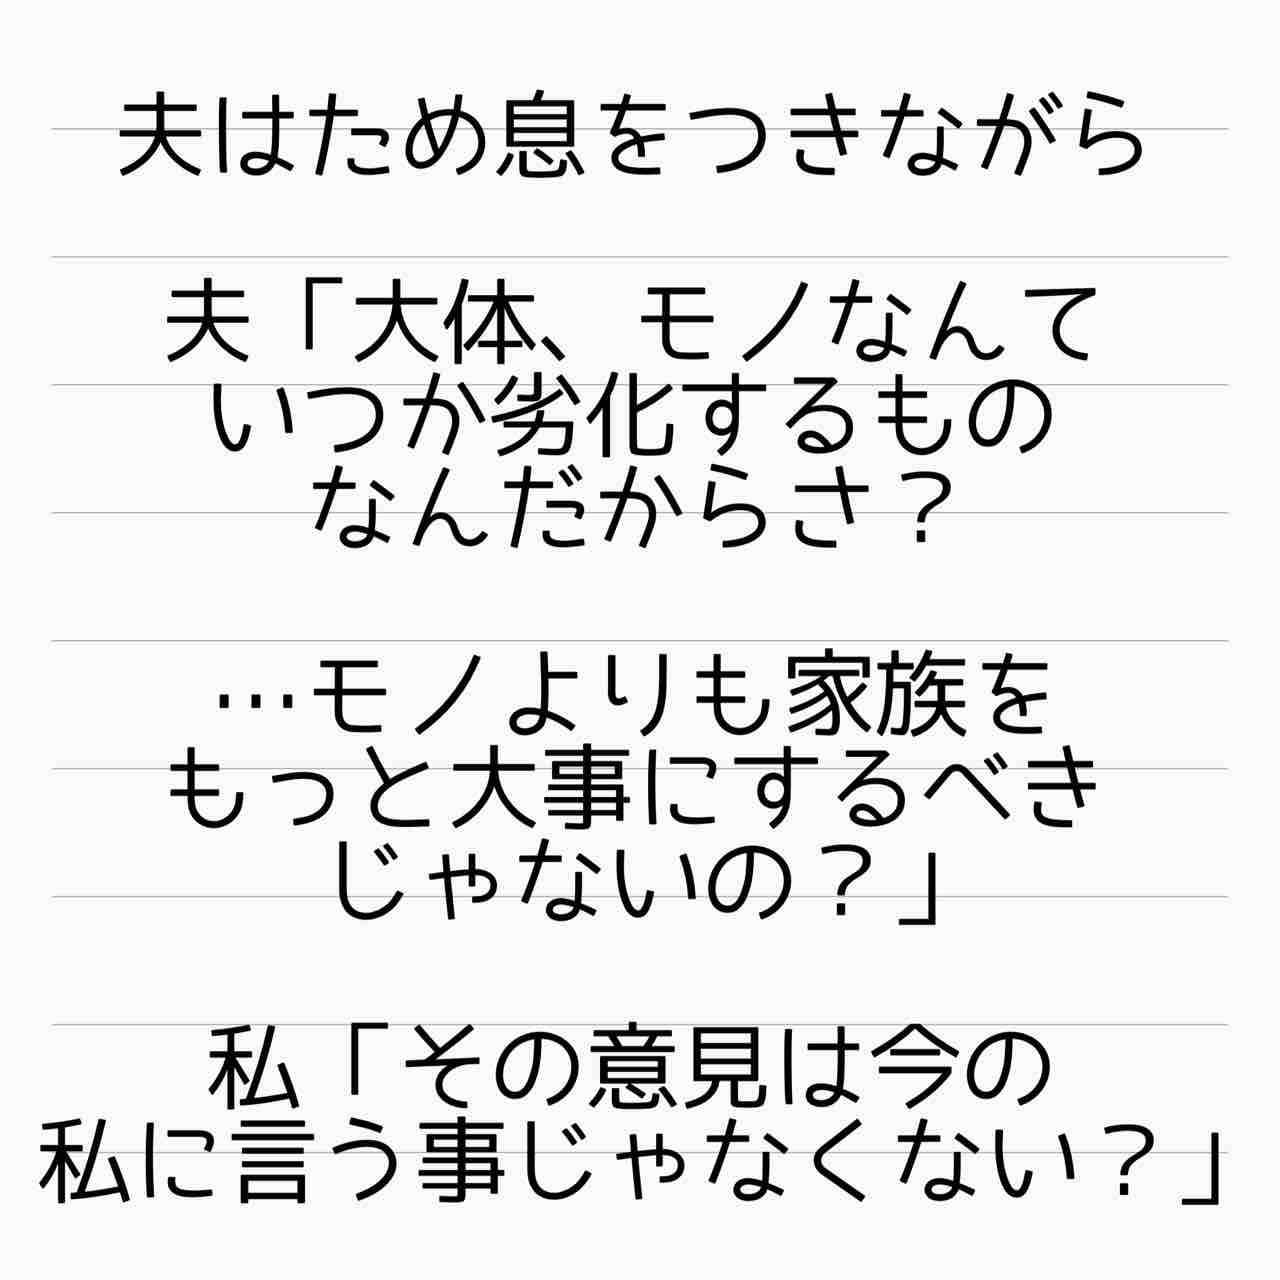 夫はため息をつきながら
夫「大体、モノなんて
いつか劣化するもの
なんだからさ？
…モノよりも家族を
もっと大事にするべき
じゃないの？」
私「その意見は今の
私に言う事じゃなくない？」